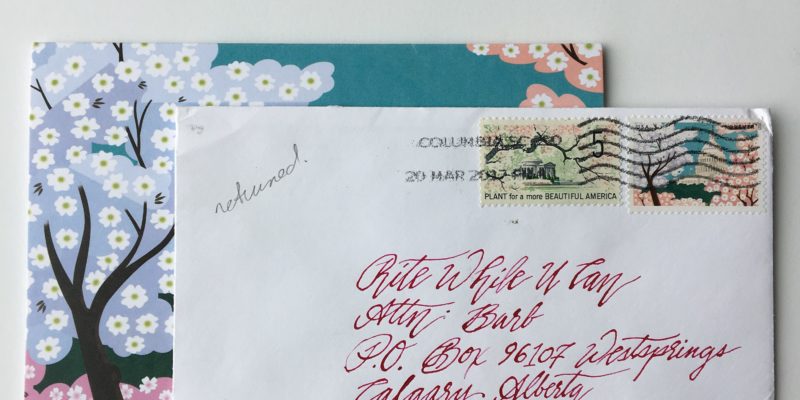 COLUMBIA SC
20 MAR 2017 PM
5
PLANT for a more BEAUTIFUL AMERICA
returned.
Rite While U Can
Attn: Barb
P.O. Box 96107 Westsprings
Calgary, Alberta